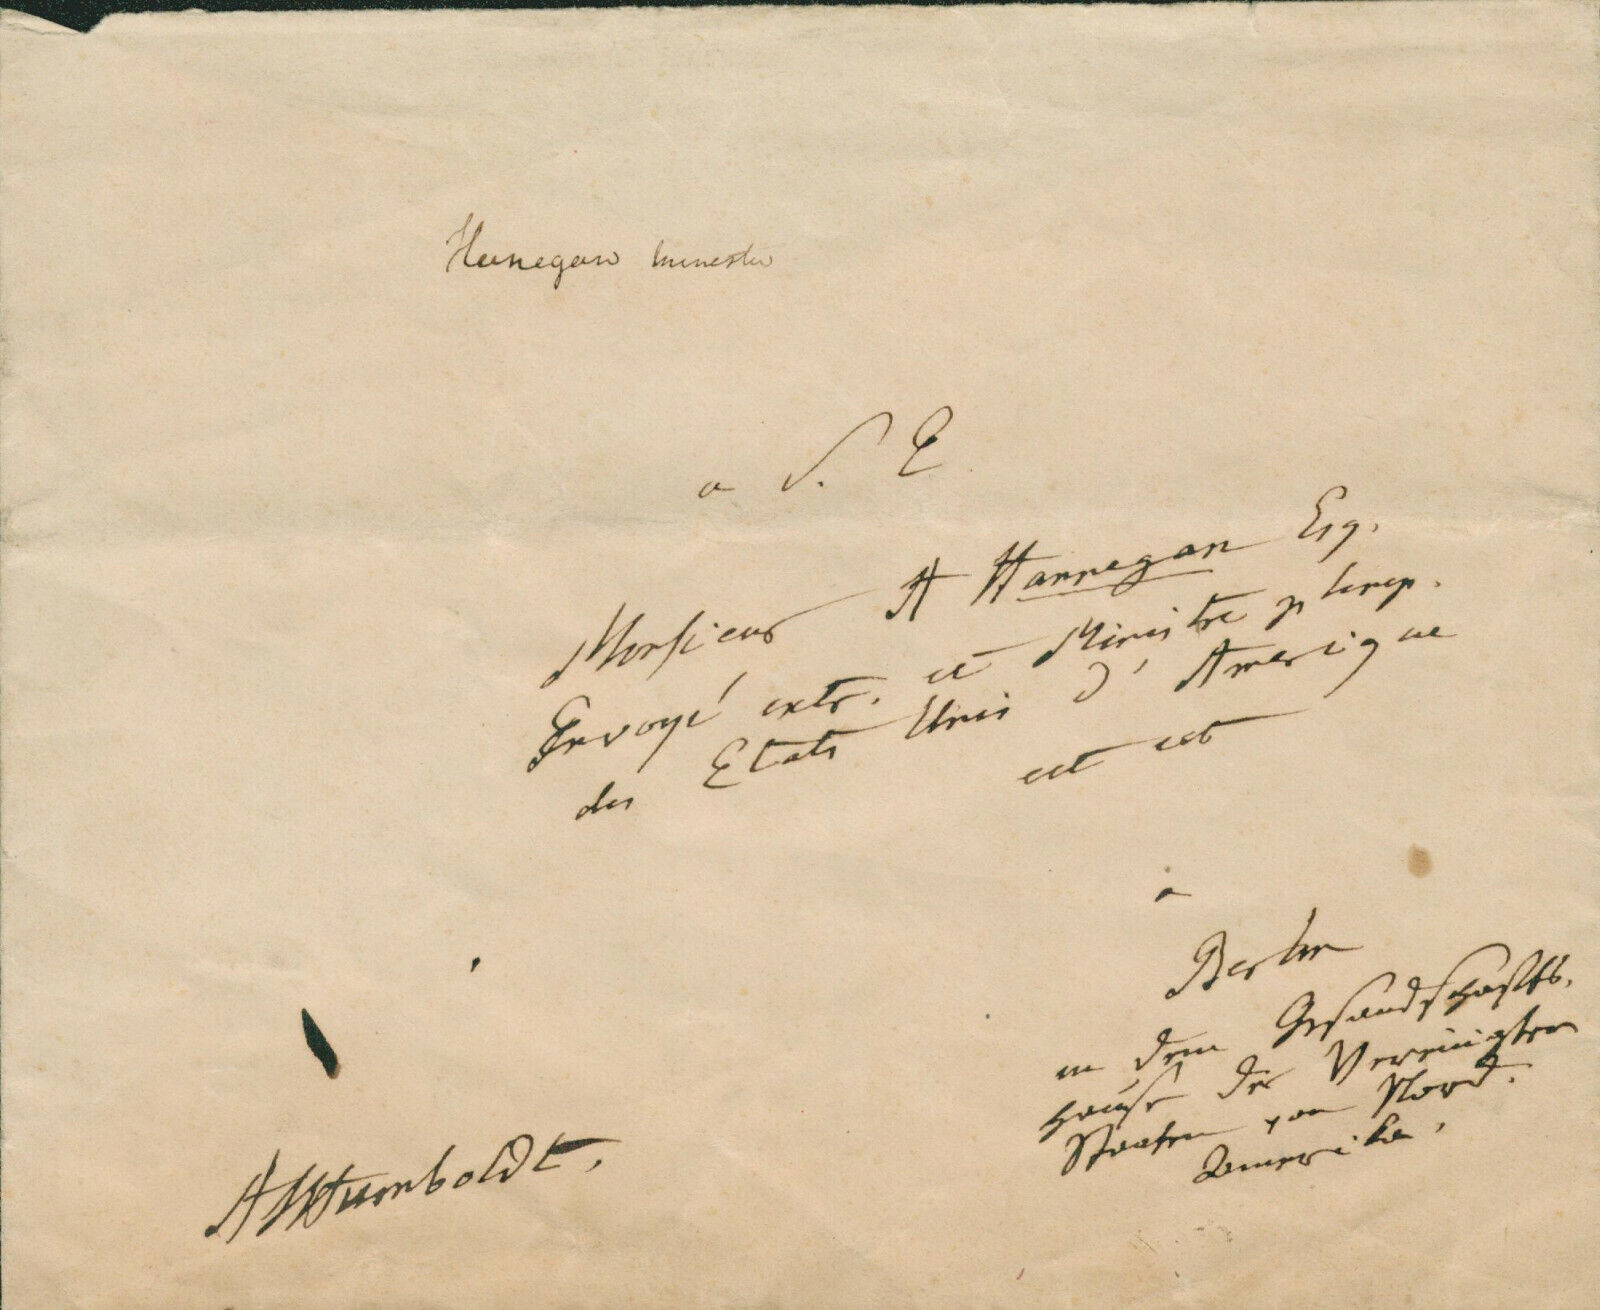 Hanegan minester
a S. E
Monsieur A Hannegan Esq.
Envoyé extr. et Ministre plenip.
des Etats Unis d'Amerique
ect ect
a
Berlin
in dem Gesandschafts.
hause der Vereinigten
Staaten von Nord.
Amerika.
AHumboldt.